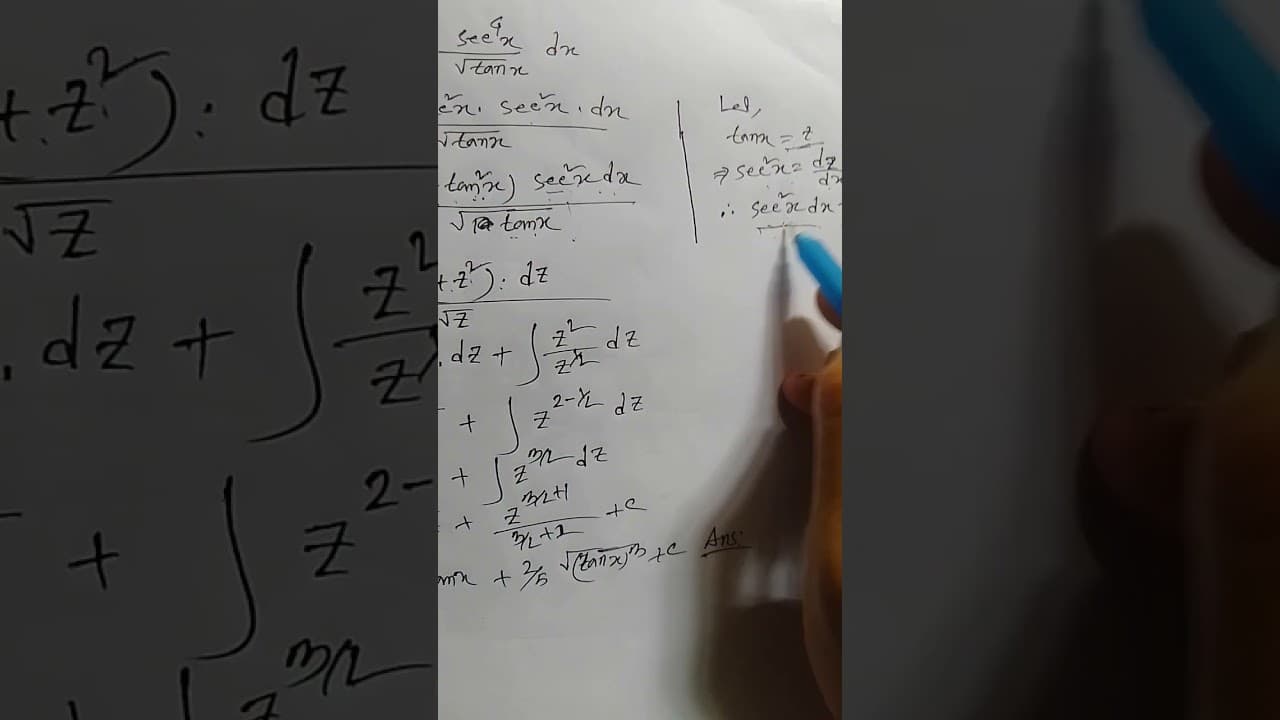 sec⁴x / √tanx dx
c²x · sec²x · dx / √tanx
tan²x) sec²x dx / √tanx
+z²) · dz / √z
. dz + ∫ z²/z^½ dz
+ ∫ z^(2-½) dz
+ ∫ z^(3/2) dz
+ z^(3/2+1) / (3/2+1) + c
anx + 2/5 √(tanx) + c Ans:
Let,
tanx = z
⇒ sec²x = dz/dx
∴ sec²x dx
+ z²) · dz
√z
. dz + ∫ z²/z
+ ∫ z^2-
z^3/2